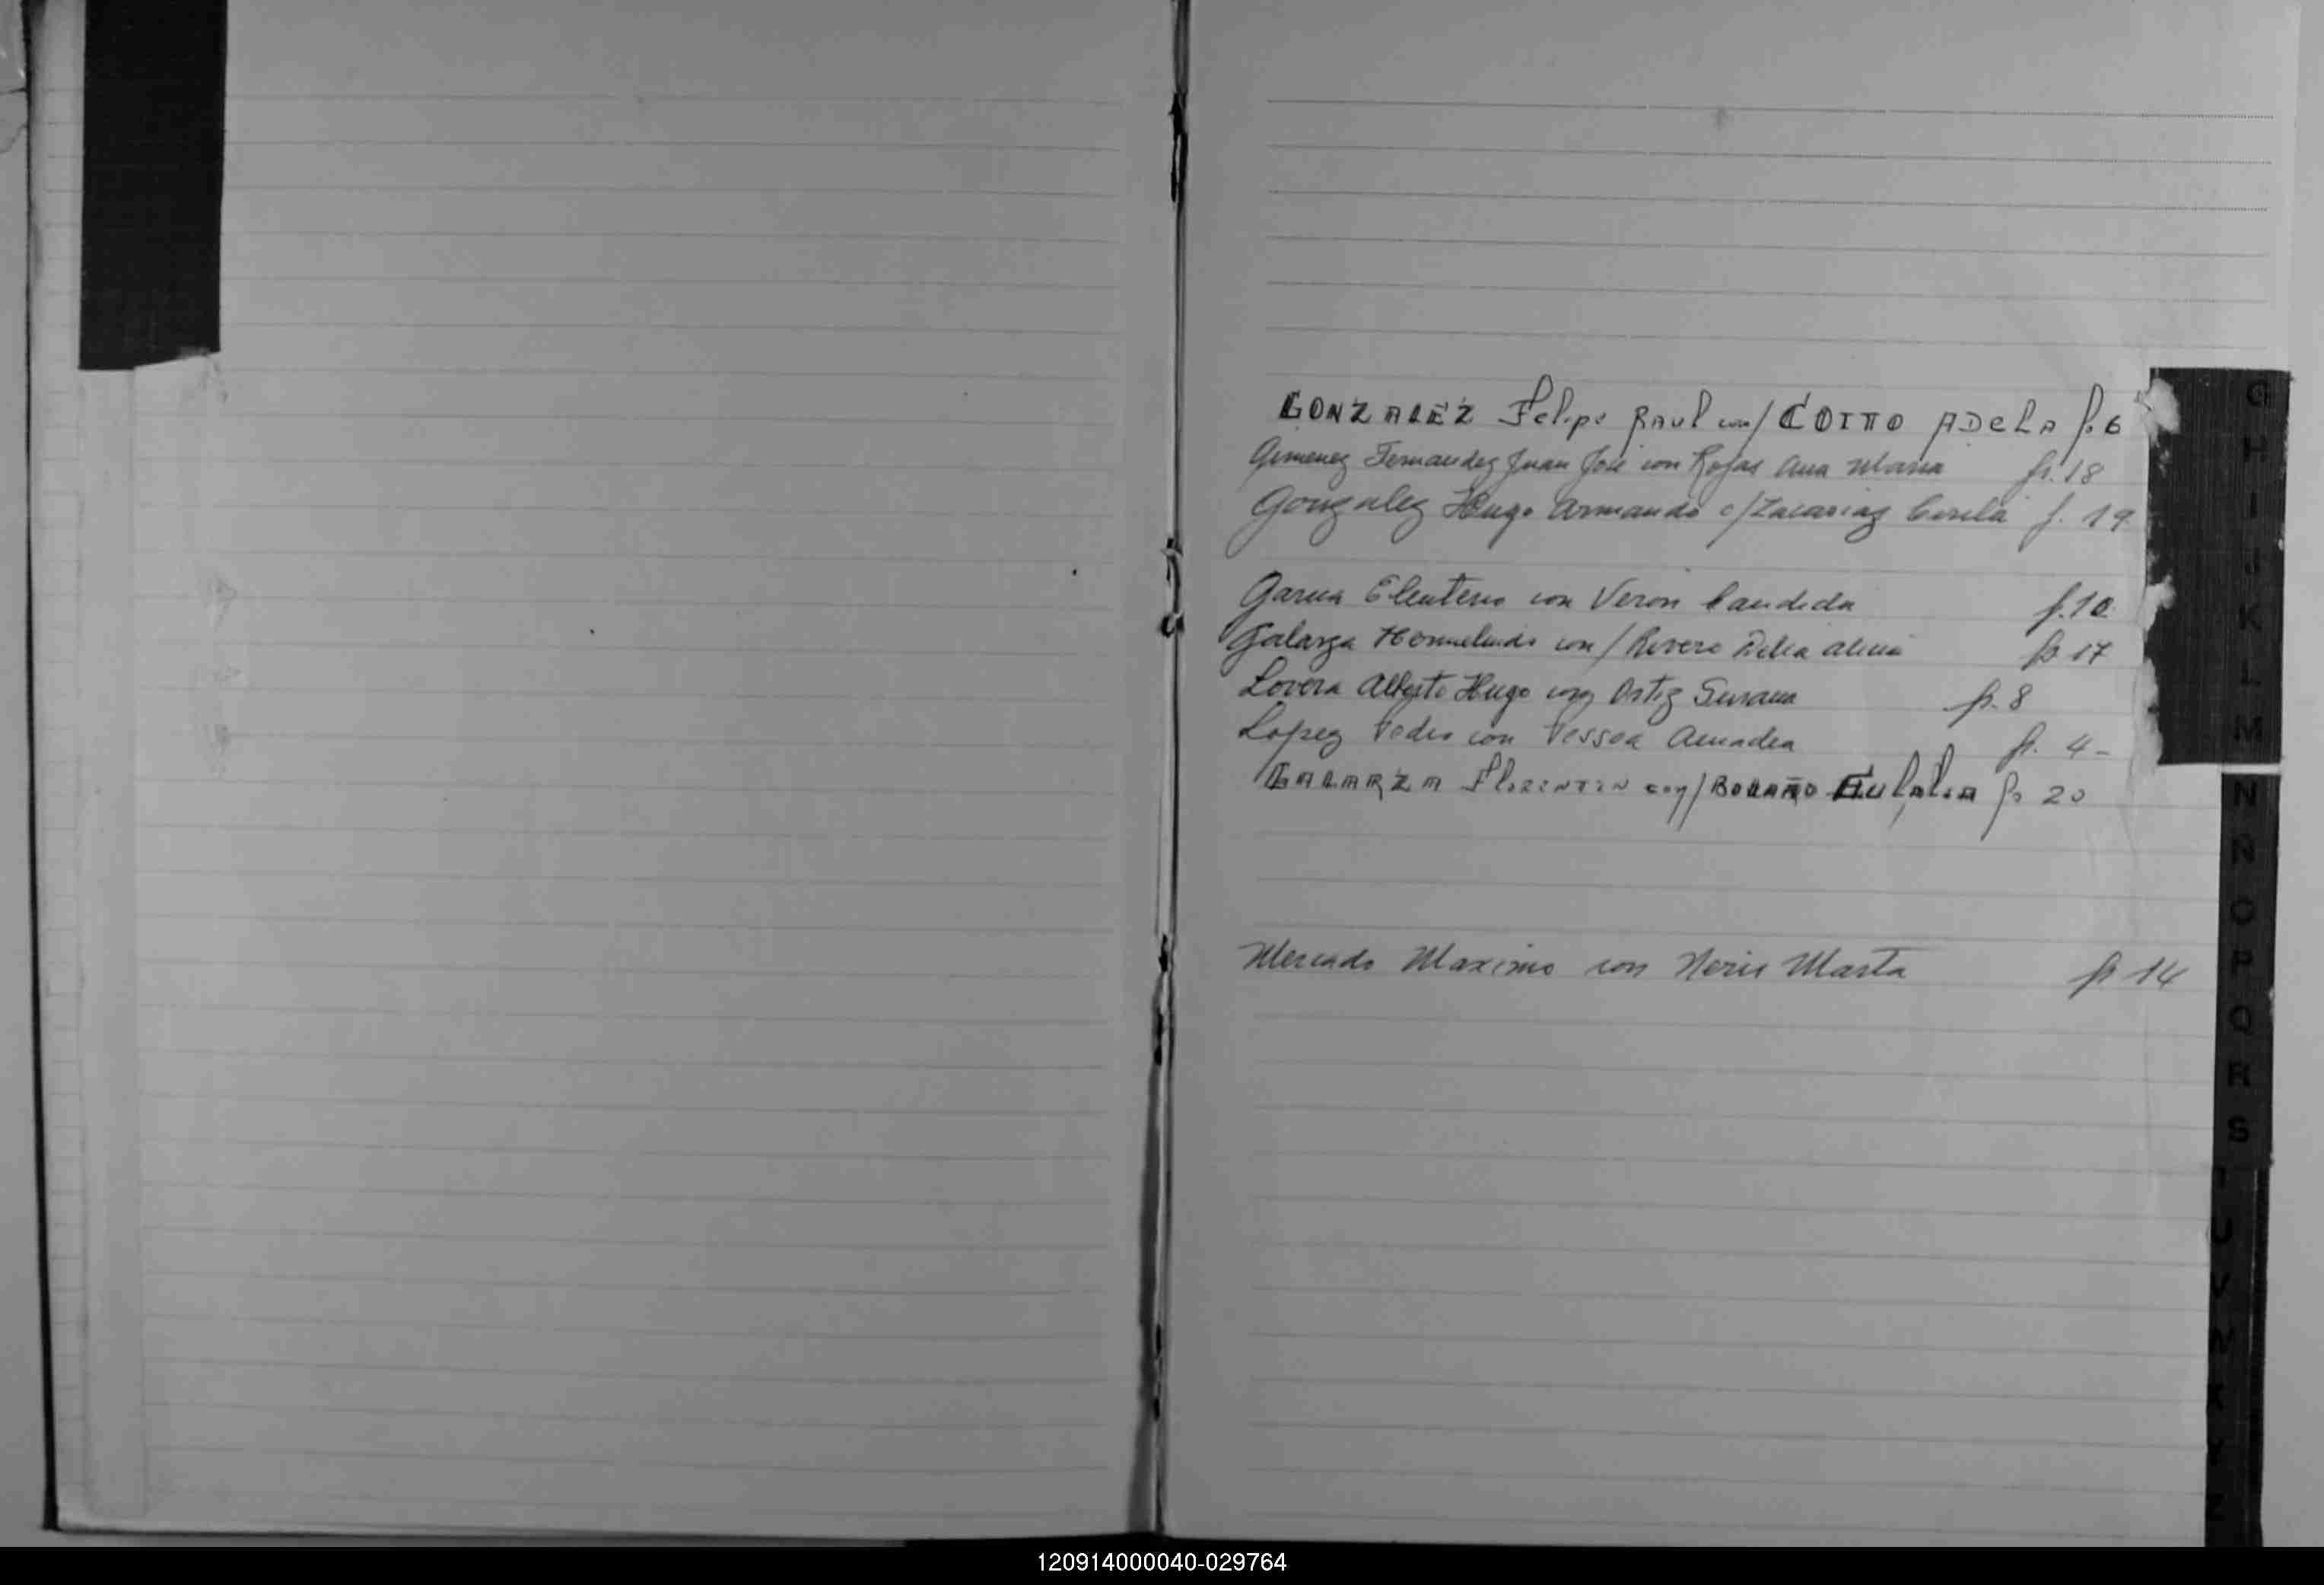 GONZALEZ Felipe Raul con/ COTTO ADELA f. 6
Gimenez Fernandez Juan José con Rojas Ana Maria f. 18
Gonzalez Hugo Armando c/ Zacarias f. 19
Garcia Eleuterio con Veron Candida f. 10
Galarza Hermelindo con/ Rivero Delia f. 17
Lovera Alberto Hugo con Ortiz Susana f. 8
Lopez Pedro con Pessoa Amadea f. 4-
GALARZA Florentin con/ BOLAÑO Eulalia f. 20
Mercado Maximo con Neris Marta f. 14
G
H
I
J
K
L
M
N
Ñ
O
P
Q
R
S
T
U
V
120914000040-029764